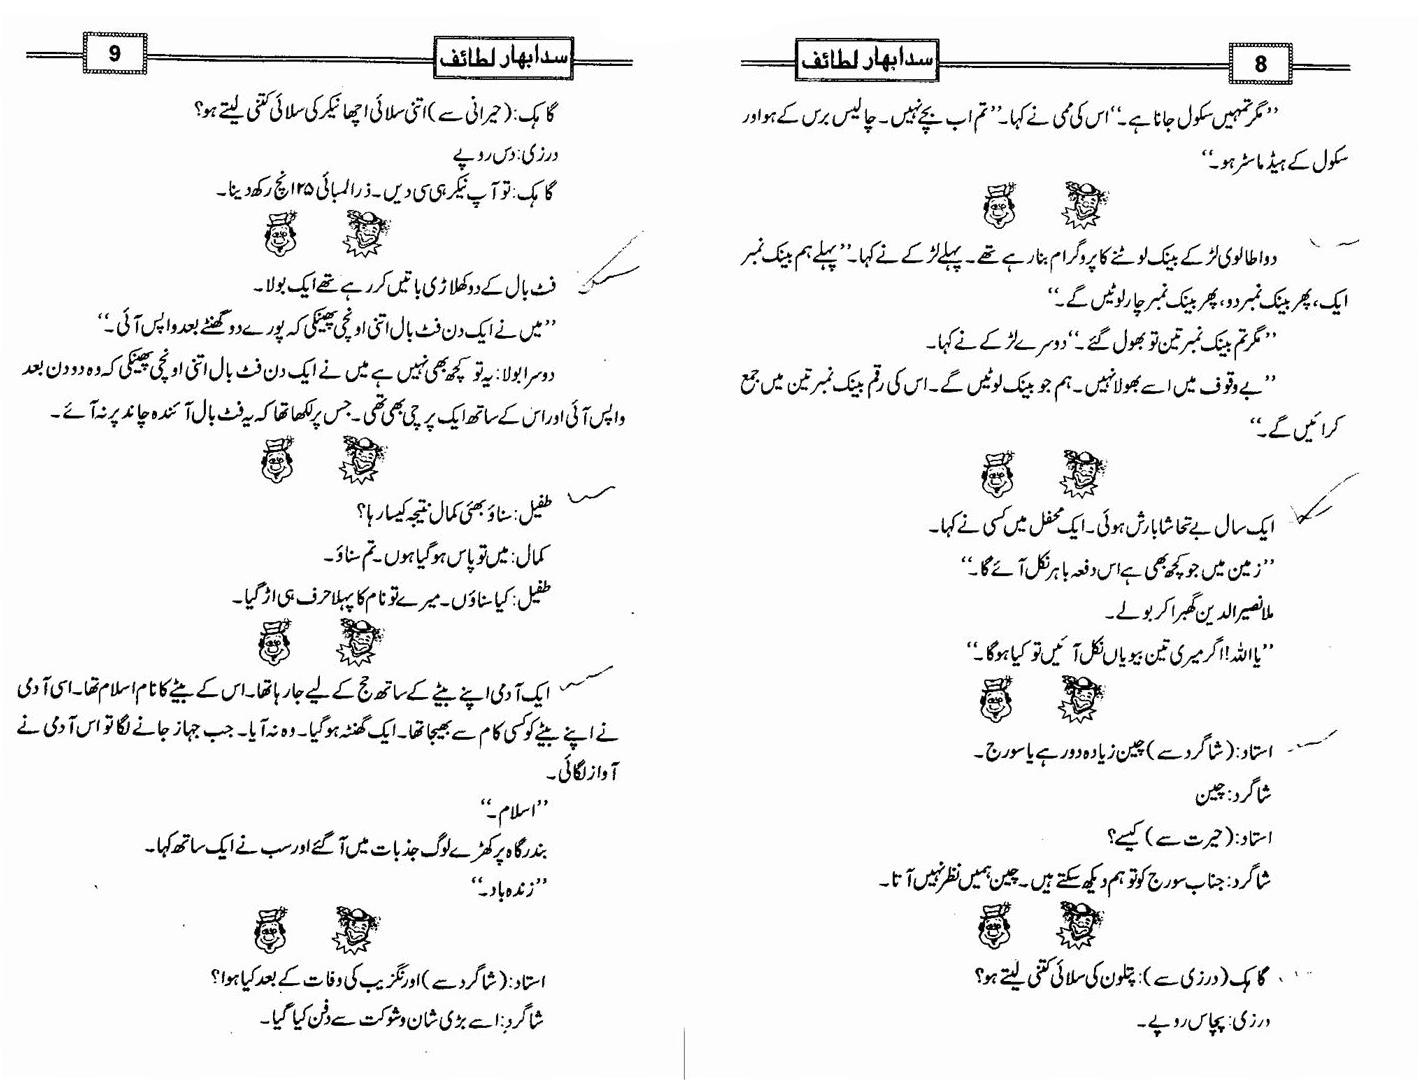 سدابھار لطائف
8
’’مگر تمہیں سکول جانا ہے۔‘‘ اس کی ممی نے کہا۔ ’’تم اب بچے نہیں۔ چالیس برس کے ہو اور
سکول کے ہیڈ ماسٹر ہو۔‘‘
دو اطالوی لڑکے بینک لوٹنے کا پروگرام بنا رہے تھے۔ پہلے لڑکے نے کہا۔ ’’پہلے ہم بینک نمبر
ایک، پھر بینک نمبر دو، پھر بینک نمبر چار لوٹیں گے۔‘‘
’’مگر تم بینک نمبر تین تو بھول گئے۔‘‘ دوسرے لڑکے نے کہا۔
’’بے وقوف میں اسے بھولا نہیں۔ ہم جو بینک لوٹیں گے۔ اس کی رقم بینک نمبر تین میں جمع
کرائیں گے۔‘‘
ایک سال بے تحاشا بارش ہوئی۔ ایک محفل میں کسی نے کہا۔
’’زمین میں جو کچھ بھی ہے اس دفعہ باہر نکل آئے گا۔‘‘
ملا نصیر الدین گھبرا کر بولے۔
’’یا اللہ! اگر میری تین بیویاں نکل آئیں تو کیا ہو گا۔‘‘
استاد: (شاگرد سے) چین زیادہ دور ہے یا سورج۔
شاگرد: چین
استاد: (حیرت سے) کیسے؟
شاگرد: جناب سورج کو تو ہم دیکھ سکتے ہیں۔ چین ہمیں نظر نہیں آتا۔
گاہک (درزی سے): پتلون کی سلائی کتنی لیتے ہو؟
درزی: پچاس روپے۔
9
سدابھار لطائف
گاہک: (حیرانی سے) اتنی سلائی اچھا نیکر کی سلائی کتنی لیتے ہو؟
درزی: دس روپے
گاہک: تو آپ نیکر ہی سی دیں۔ ذرا لمبائی ۱۲۵ انچ رکھ دینا۔
فٹ بال کے دو کھلاڑی باتیں کر رہے تھے ایک بولا۔
’’میں نے ایک دن فٹ بال اتنی اونچی پھینکی کہ پورے دو گھنٹے بعد واپس آئی۔‘‘
دوسرا بولا: یہ تو کچھ بھی نہیں ہے میں نے ایک دن فٹ بال اتنی اونچی پھینکی کہ وہ دو دن بعد
واپس آئی اور اس کے ساتھ ایک پرچی بھی تھی۔ جس پر لکھا تھا کہ یہ فٹ بال آئندہ چاند پر نہ آئے۔
طفیل: سناؤ بھئی کمال نتیجہ کیسا رہا؟
کمال: میں تو پاس ہو گیا ہوں۔ تم سناؤ۔
طفیل: کیا سناؤں۔ میرے تو نام کا پہلا حرف ہی اڑ گیا۔
ایک آدمی اپنے بیٹے کے ساتھ حج کے لیے جا رہا تھا۔ اس کے بیٹے کا نام اسلام تھا۔ اسی آدمی
نے اپنے بیٹے کو کسی کام سے بھیجا تھا۔ ایک گھنٹہ ہو گیا۔ وہ نہ آیا۔ جب جہاز جانے لگا تو اس آدمی نے
آواز لگائی۔
’’اسلام۔‘‘
بندرگاہ پر کھڑے لوگ جذبات میں آ گئے اور سب نے ایک ساتھ کہا۔
’’زندہ باد۔‘‘
استاد: (شاگرد سے) اورنگزیب کی وفات کے بعد کیا ہوا؟
شاگرد: اسے بڑی شان و شوکت سے دفن کیا گیا۔